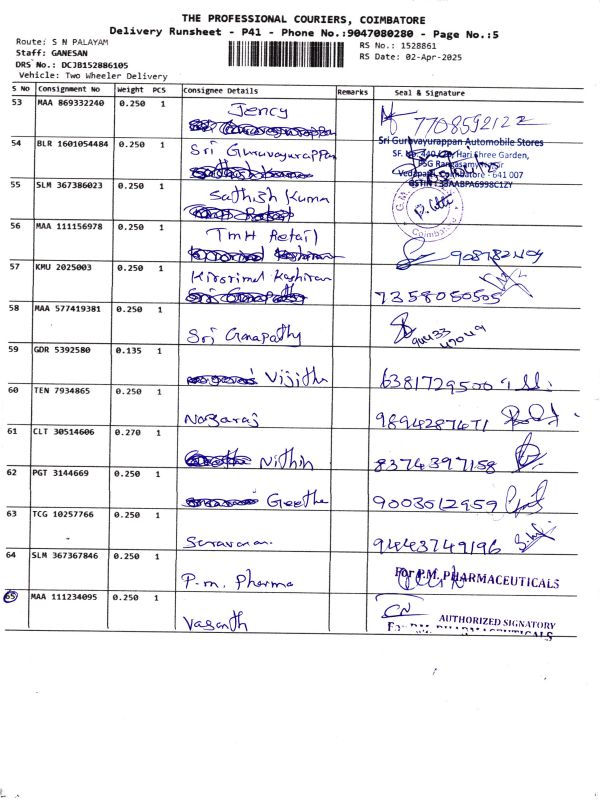 THE PROFESSIONAL COURIERS, COIMBATORE
Delivery Runsheet - P41 - Phone No.:9047080280 - Page No.:5
Route: S N PALAYAM
Staff: GANESAN
DRS No.: DCJB152886105
Vehicle: Two Wheeler Delivery
RS No.: 1528861
RS Date: 02-Apr-2025
S No Consignment No Weight PCS Consignee Details Remarks Seal & Signature
53 MAA 869332240 0.250 1 Jency 7708592122
54 BLR 1601054484 0.250 1 Sri Guruvayurappan
Sri Guruvayurappan Automobile Stores
Hari Shree Garden,
Coimbatore - 641 007
55 SLM 367386023 0.250 1 Sathish Kuma
Coimbatore
56 MAA 111156978 0.250 1 TMH Retail
57 KMU 2025003 0.250 1 Kirorimal Kashiram 7358050505
58 MAA 577419381 0.250 1 Sri Ganapathy 94433
47049
59 GDR 5392580 0.135 1 Vijitha 6381729500
60 TEN 7934865 0.250 1 Nagaraj 9894287671
61 CLT 30514606 0.270 1 Nithin 8374397158
62 PGT 3144669 0.250 1 Geetha 9003012959
63 TCG 10257766 0.250 1 Saravanan 9444374 9196
64 SLM 367367846 0.250 1 P.m. Pharma For P.M. PHARMACEUTICALS
65 MAA 111234095 0.250 1 Vasanth
AUTHORIZED SIGNATORY